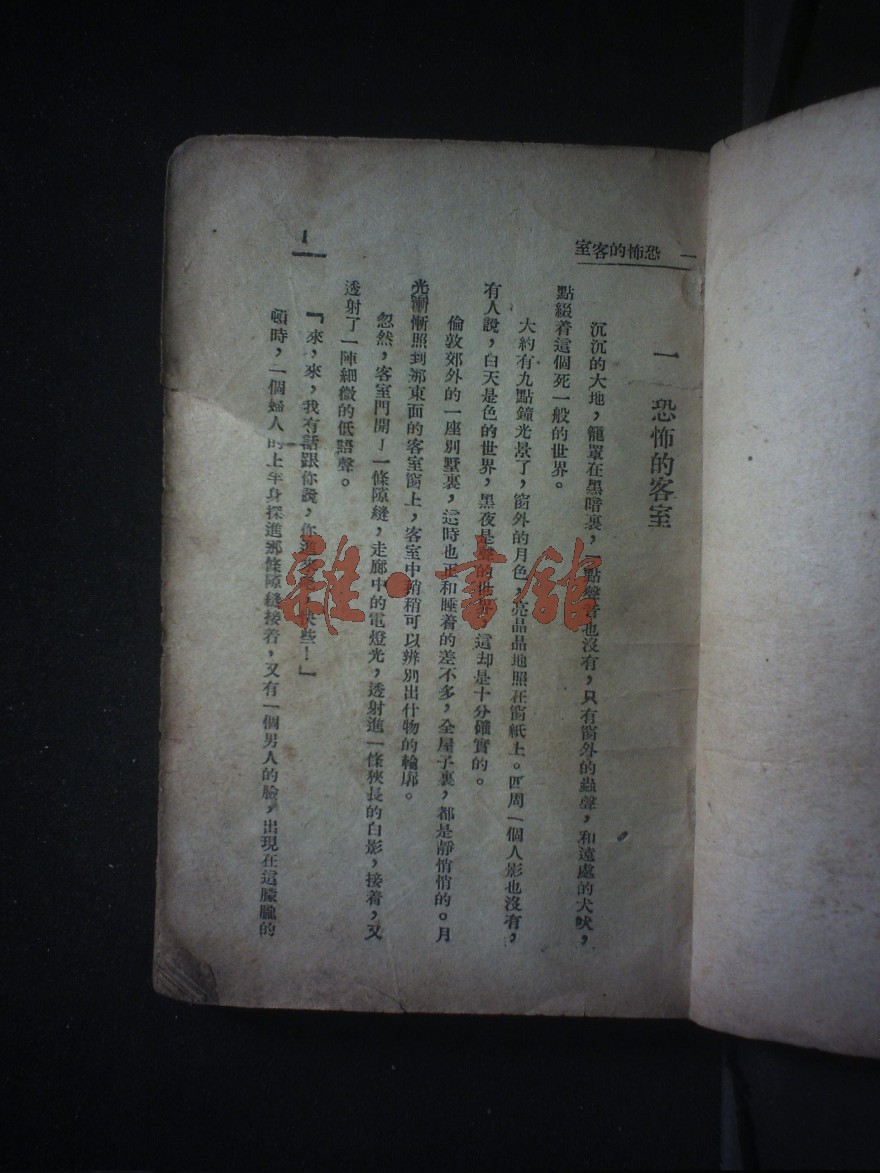 一 恐怖的客室
一 恐怖的客室
沉沉的大地，籠罩在黑暗裏，一點聲音也沒有，只有窗外的蟲聲，和遠處的犬吠，
點綴着這個死一般的世界。
大約有九點鐘光景了，窗外的月色，亮晶晶地照在窗紙上。四周一個人影也沒有，
有人說，白天是色的世界，黑夜是聲的世界，這却是十分確實的。
倫敦郊外的一座別墅裏，這時也正和睡着的差不多，全屋子裏，都是靜悄悄的。月
光漸漸照到那東面的客室窗上，客室中稍稍可以辨別出什物的輪廓。
忽然，客室門開了一條隙縫，走廊中的電燈光，透射進一條狹長的白影，接着，又
透射了一陣細微的低語聲。
『來，來，我有話跟你說，你進來 快些！』
頓時，一個婦人的上半身探進那條隙縫接着，又有一個男人的臉，出現在這朦朧的
1
雜·書館